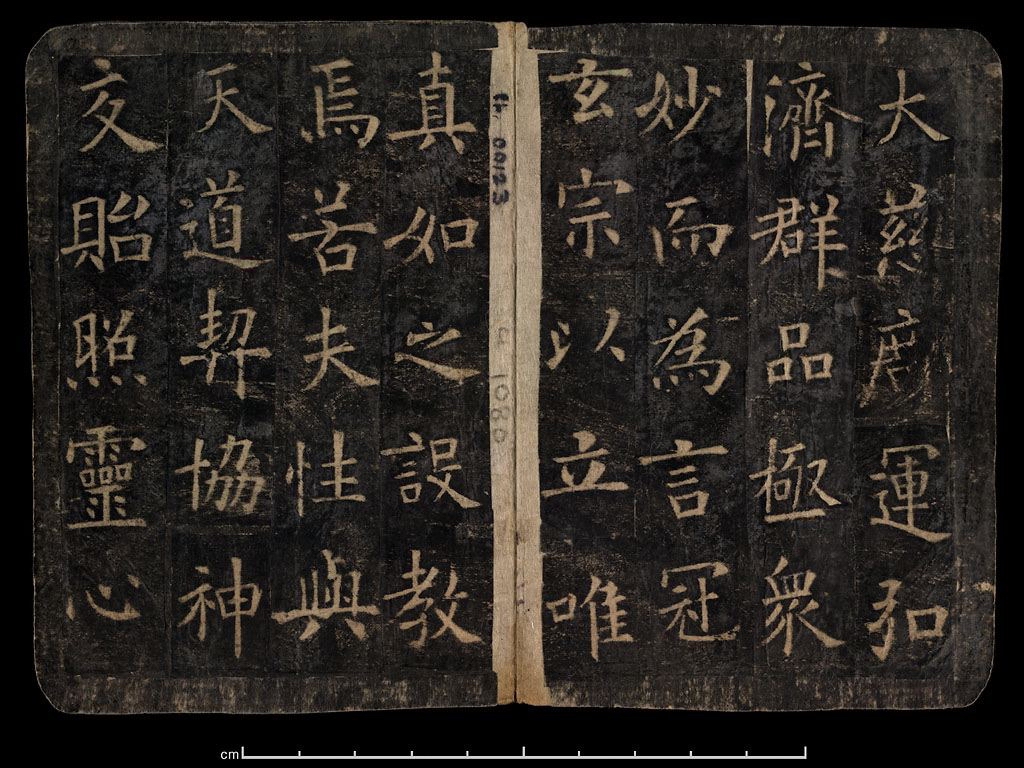 大慈廣運弘
濟群品極眾
妙而為言冠
玄宗以立唯
真如之設教
焉若夫性與
天道契協神
交貽照靈心
00123
1080
cm